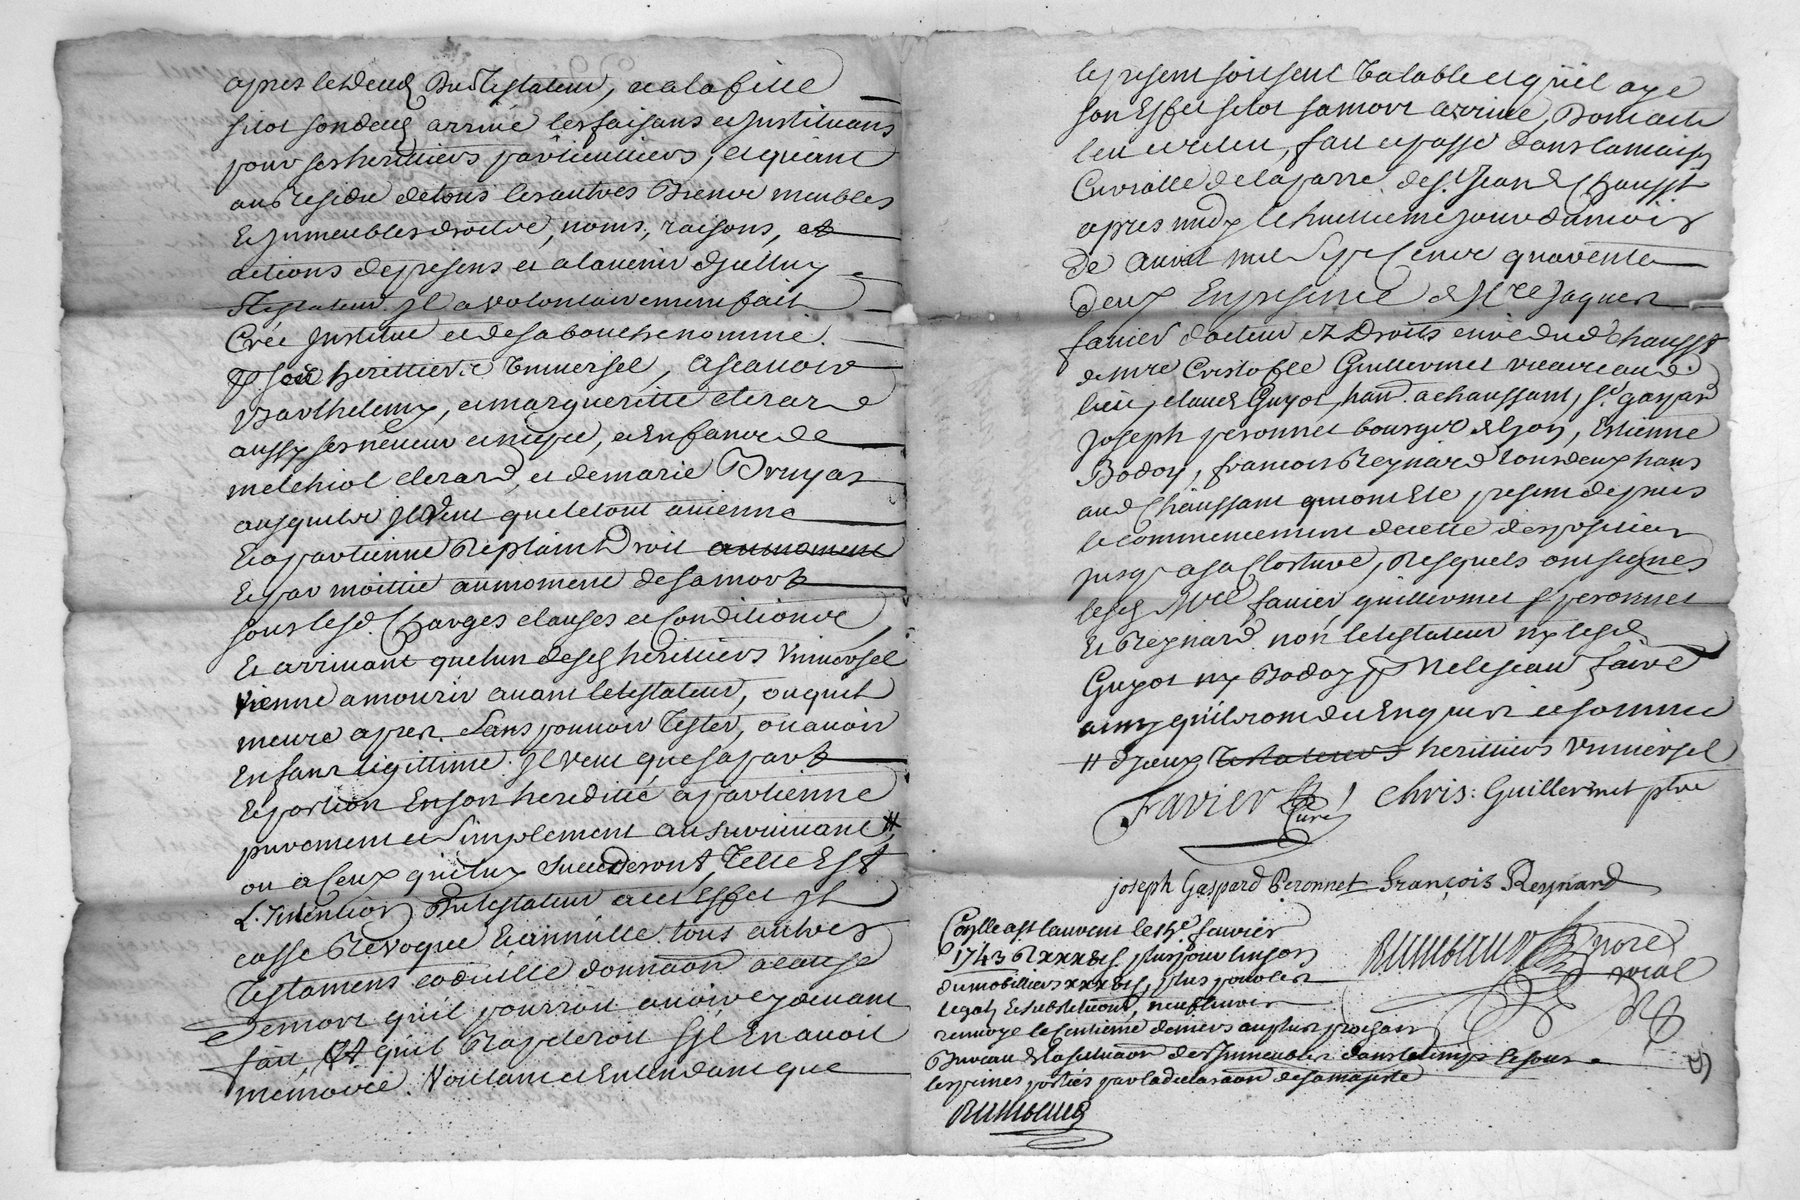 apres le deces Dud Testateur, et a la fille
sitot son deces arrivé les faisans et Jnstituans
pour ses heritiers particulliers, et quant
au Residu de tous les autres Bienne meubles
Et Jmmeubles droitse, noms, raisons, et
actions de presens et a lavenir djcelluy
Testateur Jl a volontairement fait
Créé Jnstitué et de sa bouche nommé
heritiers Vniversel, a scavoir
Barthelemy, et margueritte clerard
aussy ses neveux et niepce, et Enfance de
melchiol clerard, et de marie Bruyas
ausquelse Jl Veut que le tout avienne
Et apartienne De plaint Droit au moment
Et par moittié au moment de sa mort
sous lesd. Charges clauses et Conditionse
Et arrivant que lun desd heritiers Vniversel
Vienne a mourir avant le testateur, ou quil
meure apres sans pouvoir Tester, ou avoir
Enfans legittime Jl veut que sa part
Et portion En son heredité apartienne
purement et Simplement au survivant #
ou a Ceux qui luy succederont, Telle Est
L'Jntention Du testateur a cet Effet Jl
casse Revoque Et annulle tous autres
Testamens codicille donnaon a cause
de mort qu'il pourroit avoir cy devant
fait, Et quil Rapelleroit Sjl En avoit
memoire. Voulant et Entendant que
le present soit seul Valable et qu'il aye
son Effet sitot sa mort arrivée, Dont acte
leu et releu, fait et passé dans la maison
Curialle de la parre. de St. Jean de Chausst
apres midy le huitieme jour du mois
de Avril mil Sept Cence quarente
deux En presence de Mre Jaques
favier docteur Ez Droits curé dud Chausst
de Mre Cristofle Guillermet vicaire aud.
lieu, claude Guyot han. a chaussant, sr. gaspard
Joseph peronnet bourgeois de lyon, Estienne
Bodoy, francois Reynard tous deux hans
aud Chaussant qui ont Eté present depuis
le commencement de cette disposition
jusqu'a sa Closture, Desquels ont signés
lesd Mre favier, guillermet peronnet
Et Reynard non le testateur ny lesd.
Guyot ny Bodoy p Ne le scavoir faire
ainsy qu'ils ont dit Enquis et sommé
# djceux Testateurs heritiers Vniversel
Favier Curé
Chris: Guillermet ptre
joseph Gaspard Peronnet François Reynard
1743 R xxx
du mobilliers xxx , plus pour les
legats Et substituons, neuf livres
renvoyé le Centieme deniers au plus prochain
Bureau de la situaon des Jmmeubles dans le temps Et sous
les peines portées par la declaraaon de sa majesté